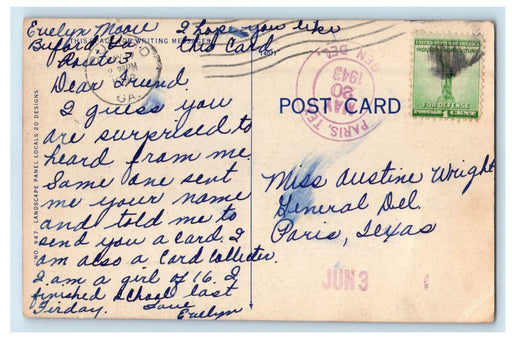 Evelyn Moore
Buford, Ga.
Route 3
I hope you like
this Card
THIS SPACE FOR WRITING MESSAGES
Dear Friend.
I guess you
are surprised to
heard from me.
Some one sent
me your name
and told me to
send you a card. I
am also a Card Collector.
I am a girl of 16. I
finished School last
Firday. Love
Evelyn
NO. 947. LANDSCAPE PANEL LOCALS 20 DESIGNS
GA.
PARIS, TEX.
GEN. DEL.
MAY
20
1943
POST CARD
UNITED STATES OF AMERICA
INDUSTRY AGRICULTURE
FOR DEFENSE
POSTAGE 1 CENT
Miss Austine Wright
General Del.
Paris, Texas
JUN 3